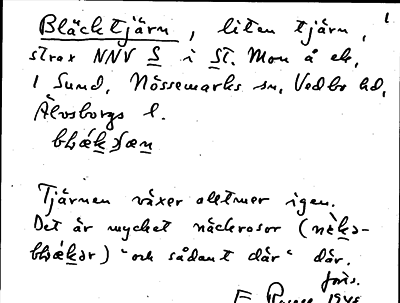 1
Bläcktjärn, liten tjärn,
strax NNV S i St. Mon å ek,
1 Sund, Nössemarks sn, Vedbo hd,
Älvsborgs l.
Tjärnen växer alltmer igen.
Det är mycket näckrosor (nèkə-
bḷækər) "och sådant där" där.
förs.
1945